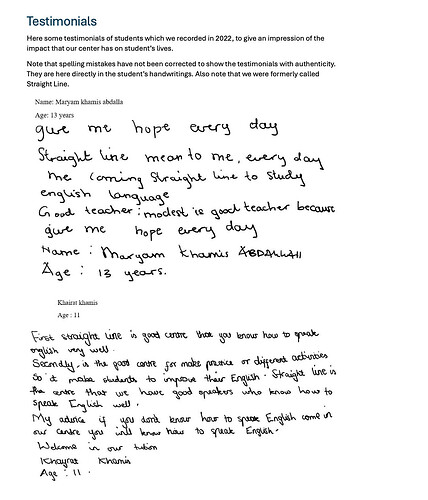 Testimonials
Here some testimonials of students which we recorded in 2022, to give an impression of the
impact that our center has on student's lives.
Note that spelling mistakes have not been corrected to show the testimonials with authenticity.
They are here directly in the student's handwritings. Also note that we were formerly called
Straight Line.
Name: Maryam khamis abdalla
Age: 13 years
give me hope every day
Straight line mean to me, every day
me coming Straight line to study
english language
Good teacher: modest is good teacher because
give me hope every day
Name : Maryam Khamis ABDALLAH
Age : 13 years.
Khairat khamis
Age : 11
First straight line is good centre that you know how to speak
english very well.
Secondly, is the good centre for make practice or different activities
So it make students to improve their English. Straight line is
the centre that we have good speakers who know how to
speak English well.
My advice if you don't know how to speak English come in
our centre you will know how to speak English.
Welcome in our tution
Khayrat Khamis
Age : 11.